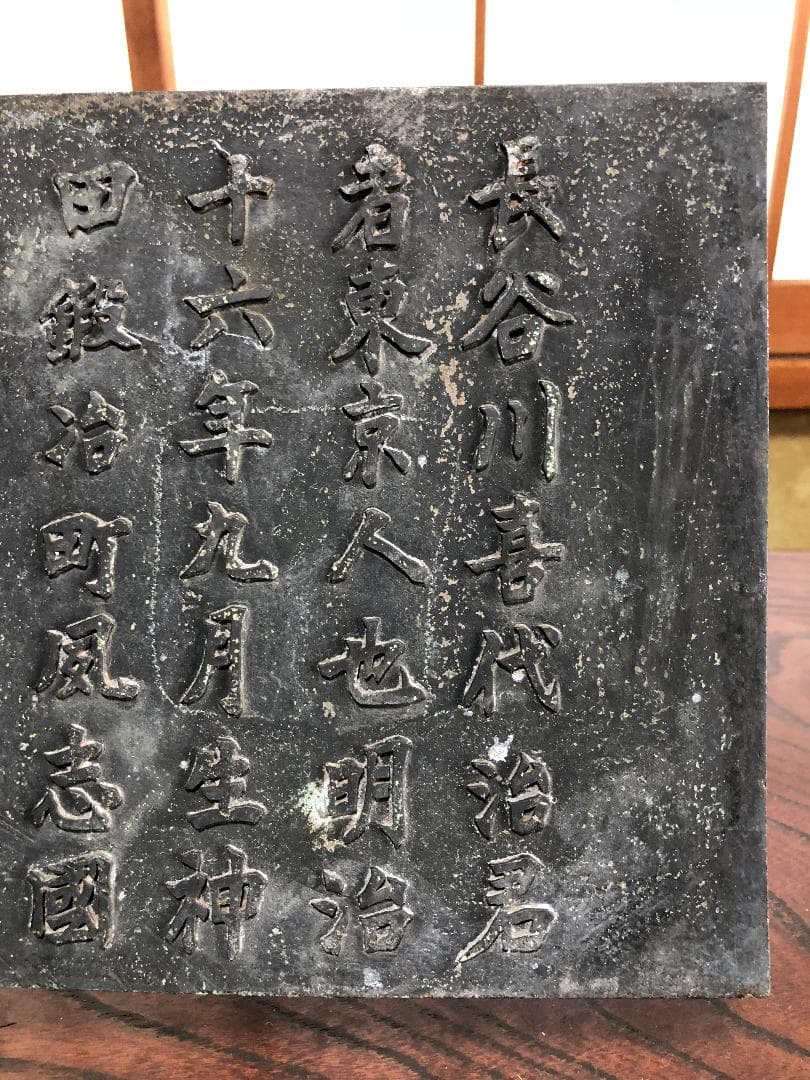 長谷川喜代治君
者東京人也明治
十六年九月生神
田鍛冶町夙志國